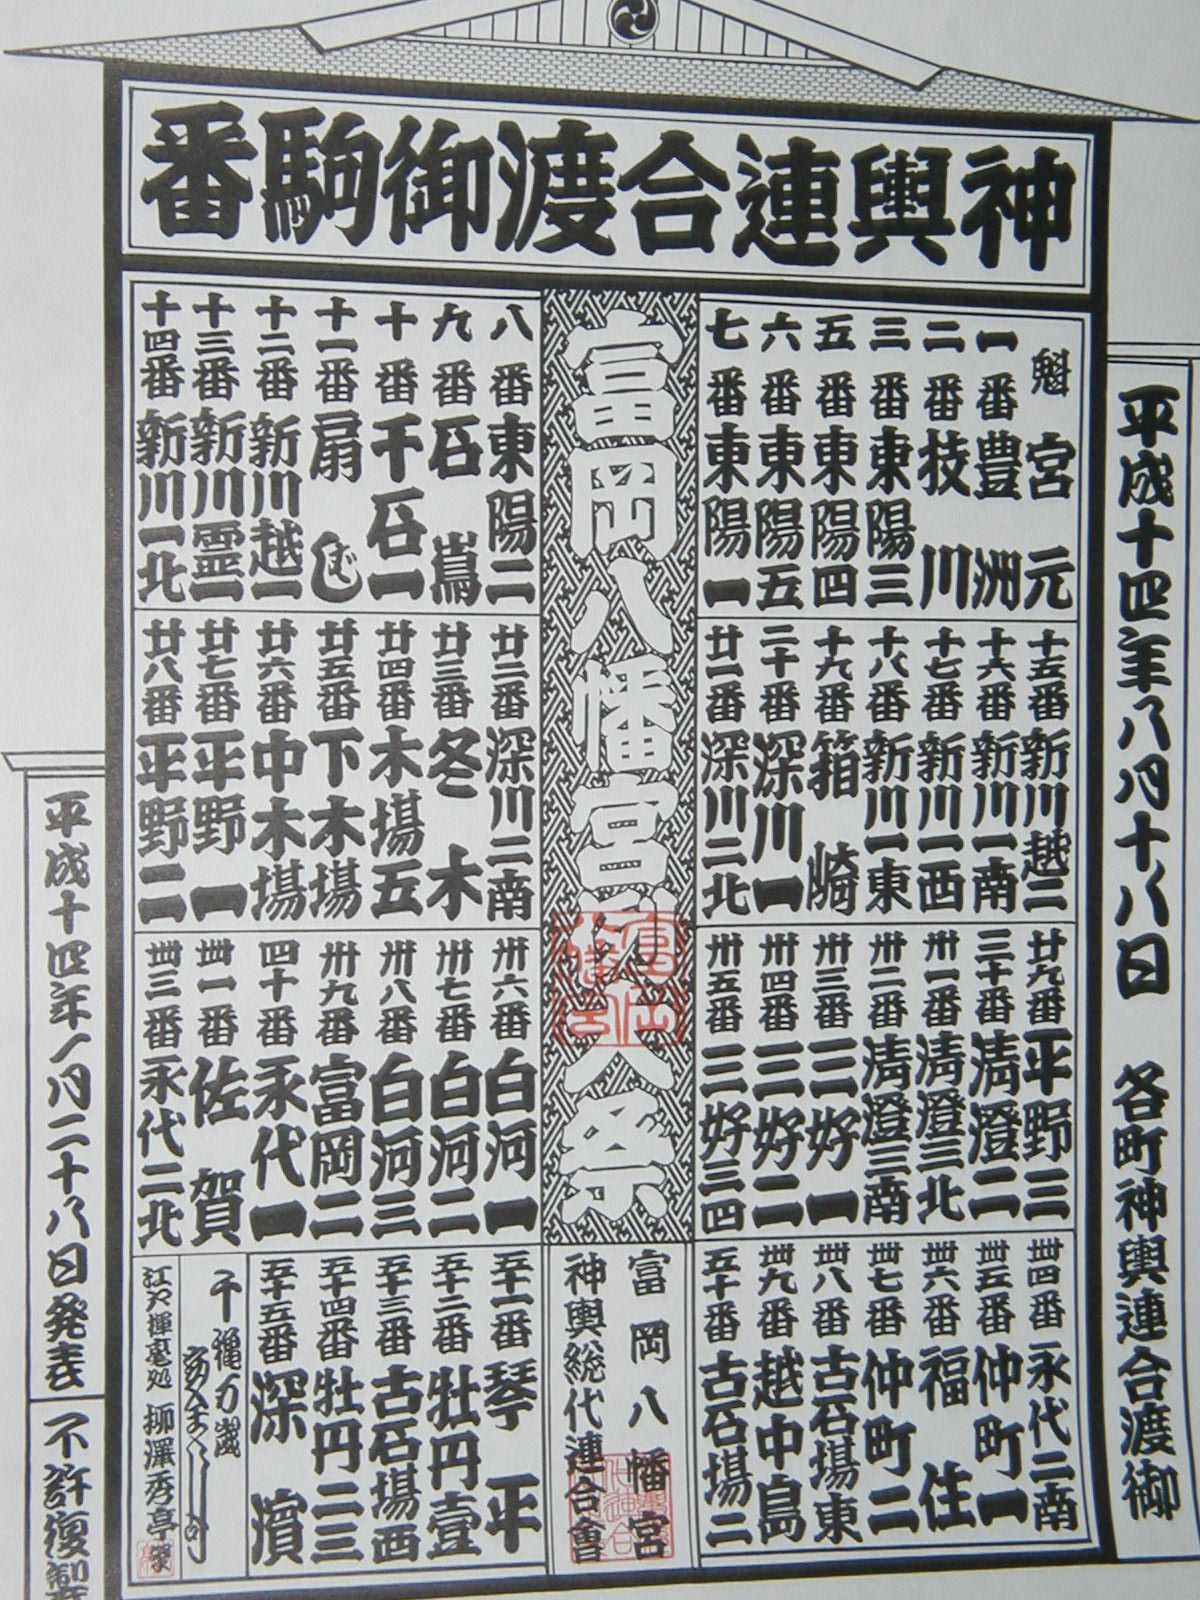 神輿連合渡御駒番
平成十四年八月十八日　各町神輿連合渡御
魁 宮元
一番 豊洲
二番 枝川
三番 東陽三
五番 東陽四
六番 東陽五
七番 東陽一
富岡八幡宮例大祭
八番 東陽二
九番 石嶌
十番 千石一
十一番 扇むし
十二番 新川越一
十三番 新川霊一
十四番 新川一北
十五番 新川越二
十六番 新川一南
十七番 新川一西
十八番 新川一東
十九番 箱崎
二十番 深川一
廿一番 深川二北
廿二番 深川二南
廿三番 冬木
廿四番 木場五
廿五番 下木場
廿六番 中木場
廿七番 平野一
廿八番 平野二
廿九番 平野三
三十番 清澄二
卅一番 清澄三北
卅二番 清澄三南
卅三番 三好一
卅四番 三好二
卅五番 三好三四
卅六番 白河一
卅七番 白河二
卅八番 白河三
卅九番 富岡二
四十番 永代一
卌一番 佐賀
卌三番 永代二北
卌四番 永代二南
卌五番 仲町一
卌六番 福住
卌七番 仲町二
卌八番 古石場東
卌九番 越中島
五十番 古石場二
富岡八幡宮
神輿総代連合會
五十一番 琴平
五十二番 牡円壹
五十三番 古石場西
五十四番 牡円二三
五十五番 深濱
千穐万歳
江戸揮毫処 柳澤秀亭
平成十四年一月二十八日発表
不許復製
富岡八幡宮